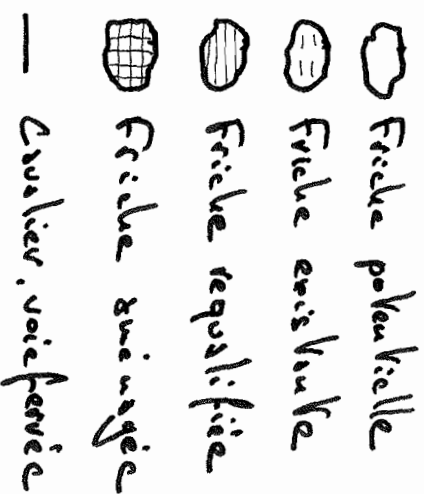 Friche potentielle
Friche existante
Friche requalifiée
Friche aménagée
Cavalier, voie ferrée